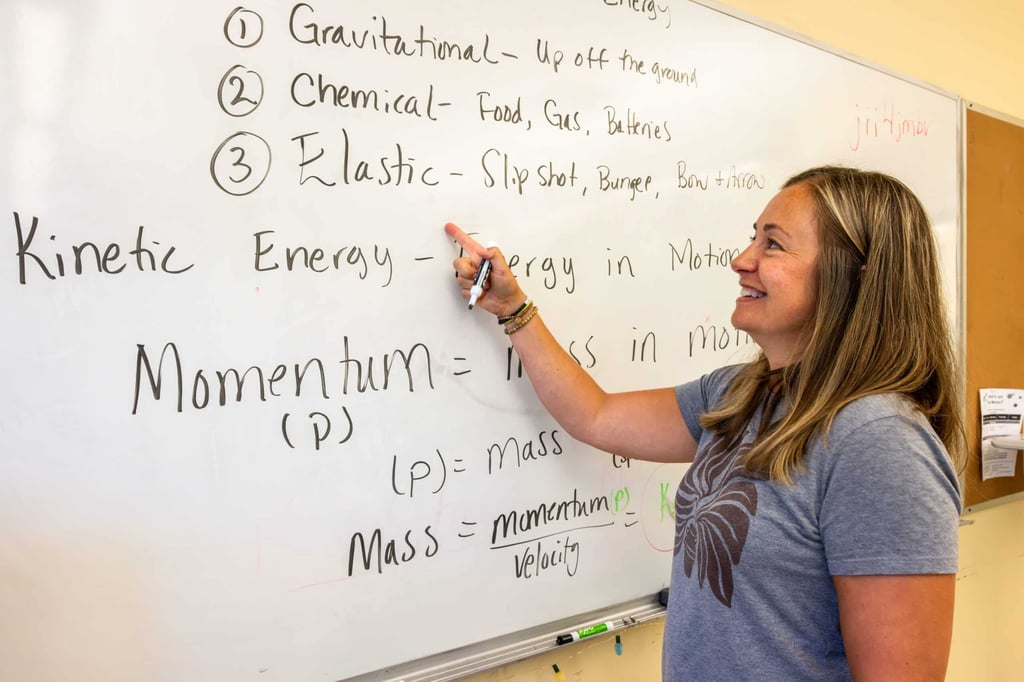 Energy
① Gravitational - Up off the ground
② Chemical - Food, Gas, Batteries
③ Elastic - Slip shot, Bungee, Bow + Arrow
jri4jmov
Kinetic Energy - Energy in Motion
Momentum = mass in moti
(p)
(p) = mass
Mass = momentum(p) = K
velocity